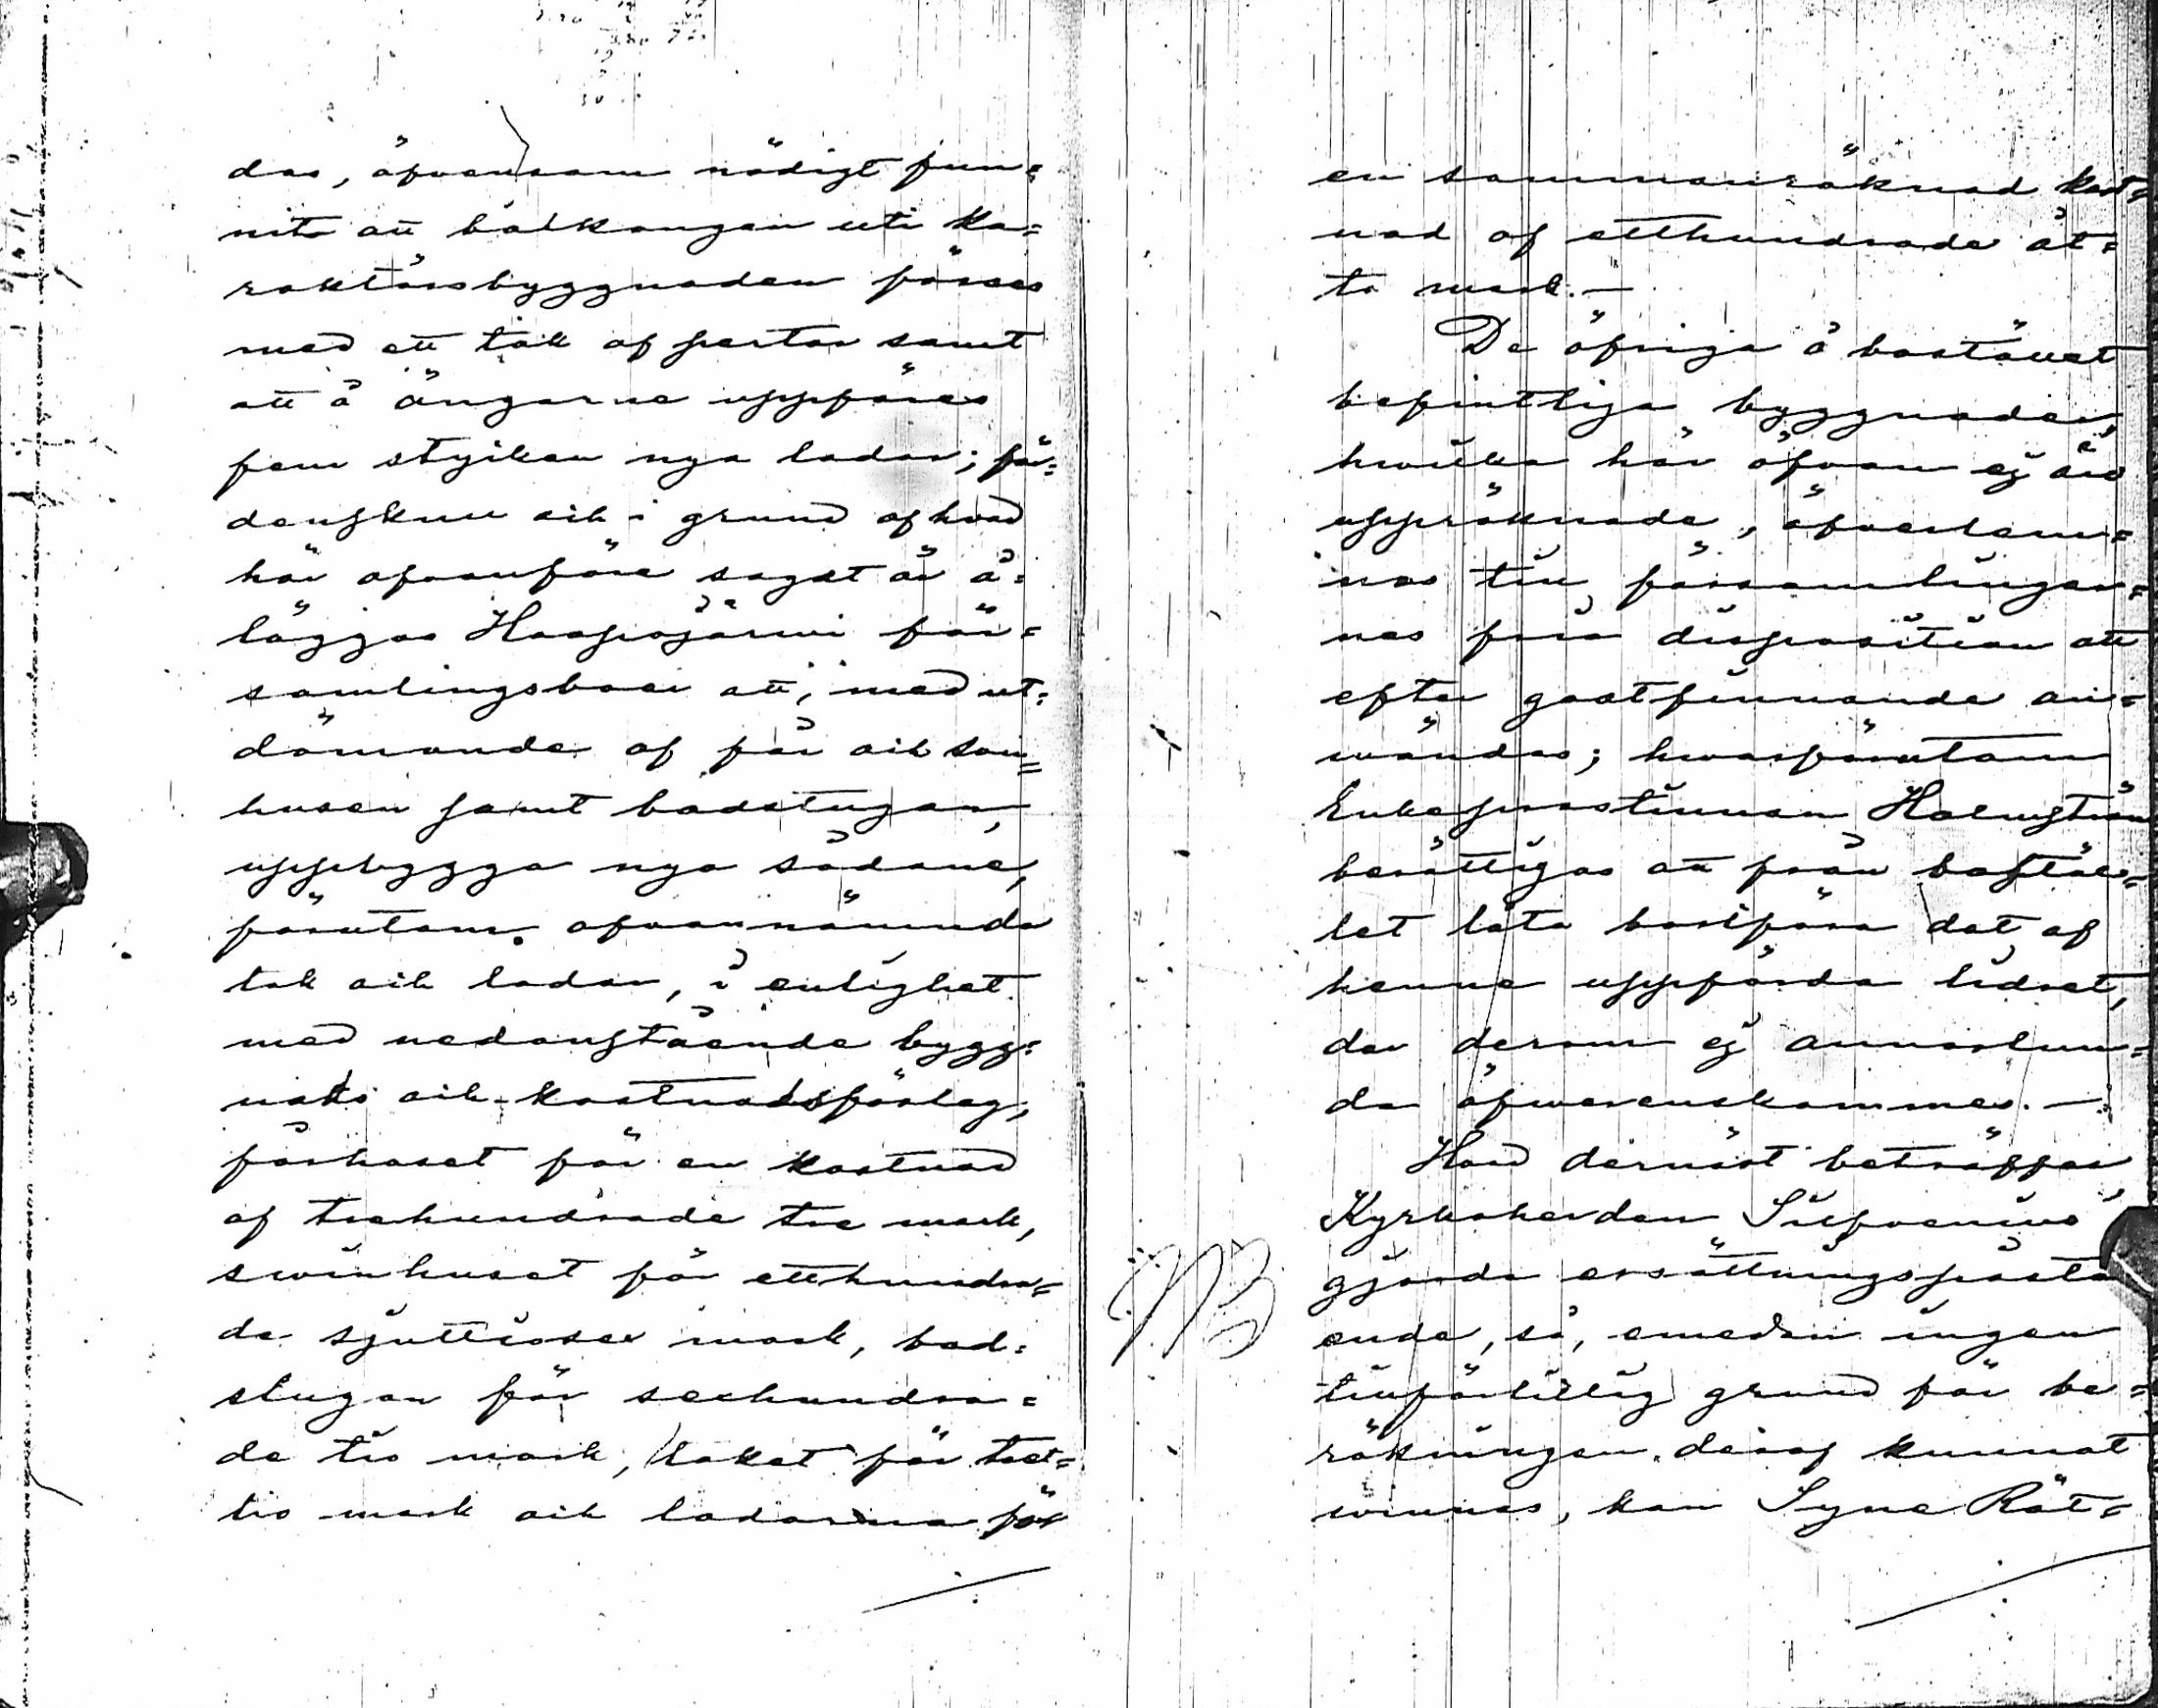 das, äfvensom nödigt fun=
nits att balkongen uti ka=
raktärsbyggnaden förses
med ett tak af pertor samt
att å ängarne uppföres
fem stycken nya lador; för=
denskull och i grund af hvad
här ofvanföre sagdt är å=
lägges Haapajärwi för=
samlingsboer att, med ut=
dömande af får och swin=
husen samt badstugan,
uppbygga nya sådane,
förutom ofvannämnda
tak och lador, i enlighet
med nedanstående bygg=
nads och kostnadsförslag,
fårhuset för en kostnad
af trehundrade tre mark,
swinhuset för etthundra=
de sjuttiosex mark, bad=
stugan för sexhundra=
de tio mark, taket för tret=
tio mark och ladorna för
en sammanräknad kost=
nad af etthundrade åt=
ta mark.—
De öfriga å bostället
befintliga byggnader,
hwilka här ofvan ej äro
uppräknade, öfverlem=
nas till församlingar=
nas fria disposition att
efter godtfinnande an=
wändas; hwarförutom
Enkeprostinnan Holmström
berättigas att från bostäl=
let låta bortföra det af
henne uppförda lidret,
der derom ej annorlun=
da öfwerenskommes.—
Hvad dernäst beträffar
Kyrkoherden
gjorda ersättningspåstå
ende, så, emedan ingen
tillförlitlig grund för be=
räkningen deraf kunnat
winnas, kan Syne Rät=
NB